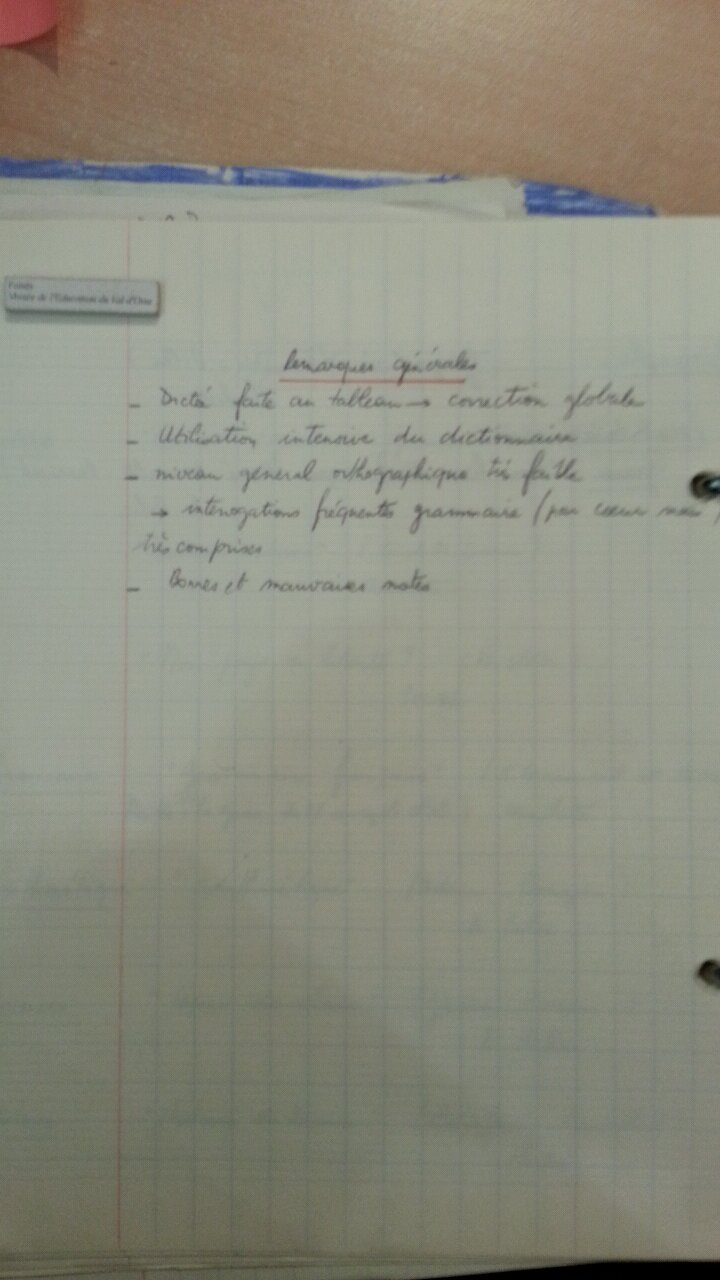 Fonds
Musée de l'Education du Val d'Oise
Remarques générales
- Dictée faite au tableau → correction globale
- Utilisation intensive du dictionnaire
- niveau général orthographique très faible
→ interrogations fréquentes grammaire (par coeur mais
très comprises
- Bonnes et mauvaises notes